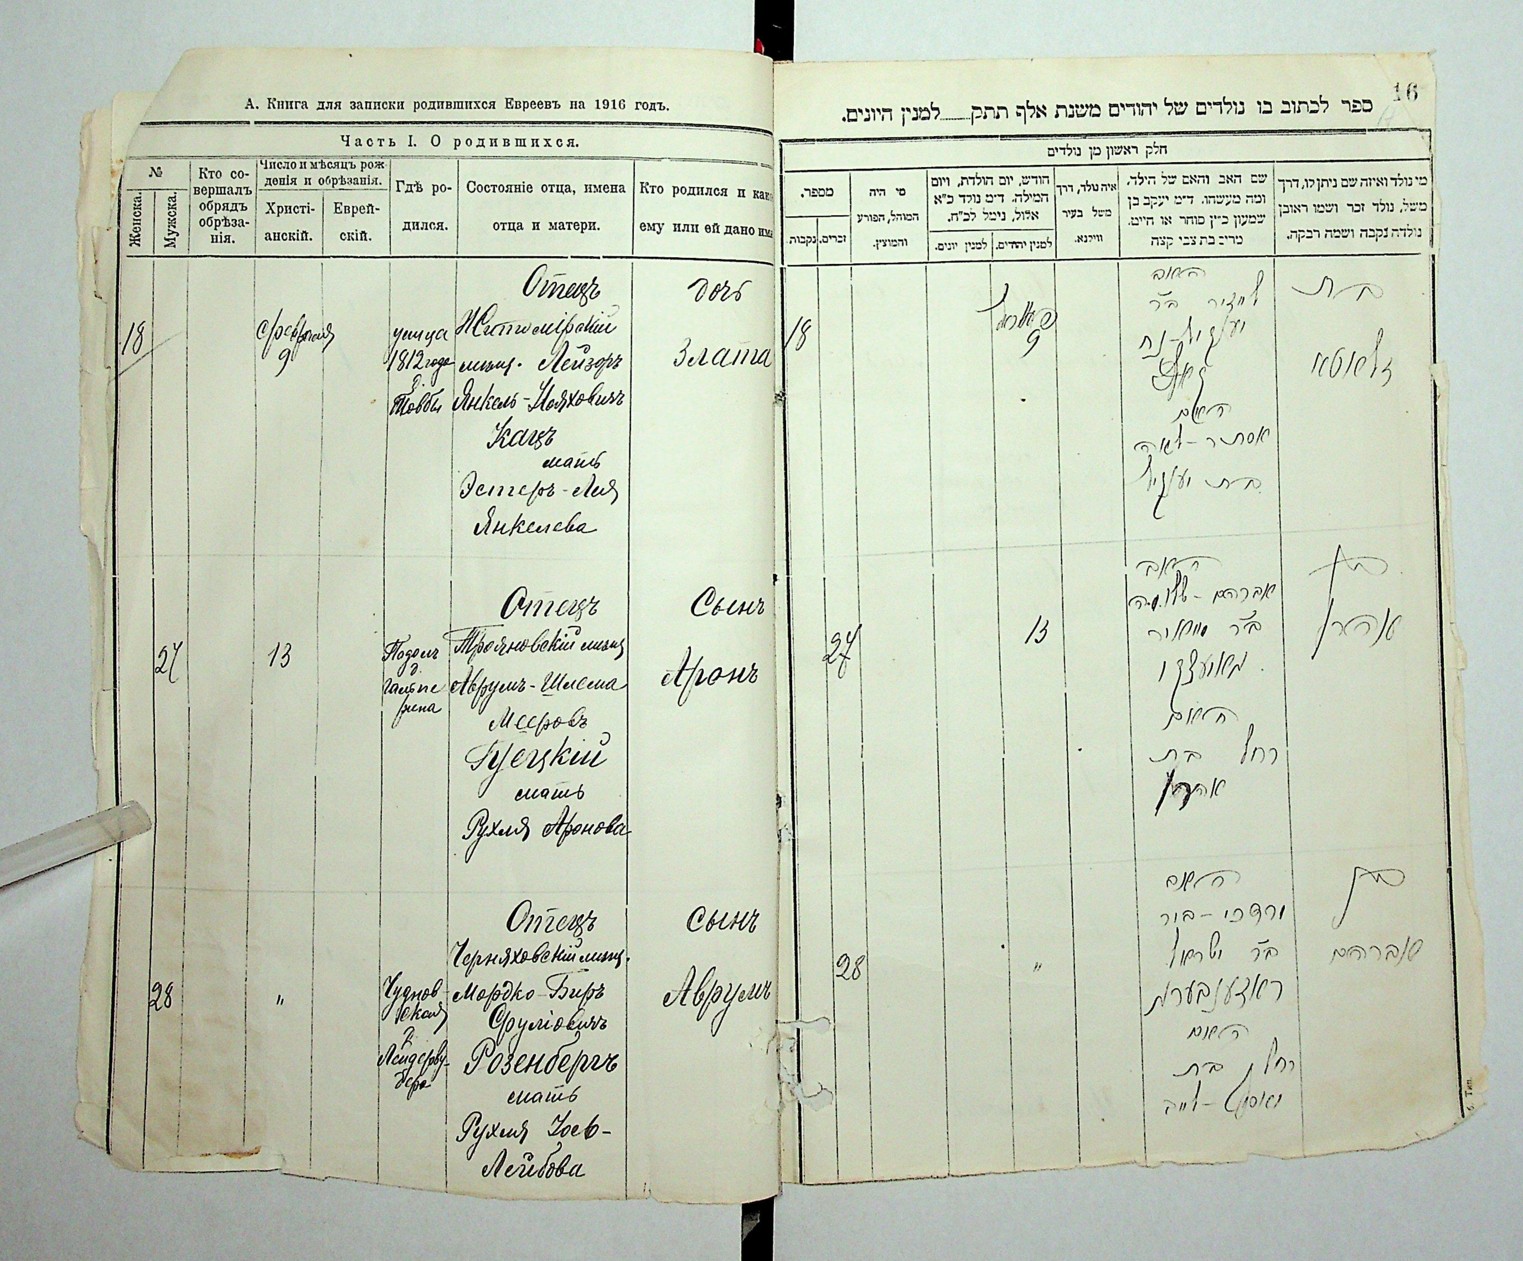 А. Книга для записки родившихся Евреевъ на 1916 годъ.
Часть I. О родившихся.
№
Женска.
Мужска.
Кто со-
вершалъ
обрядъ
обрѣза-
нія.
Число и мѣсяцъ рож
денія и обрѣзанія.
Христі-
анскій.
Еврей-
скій.
Гдѣ ро-
дился.
Состояніе отца, имена
отца и матери.
Кто родился и как
ему или ей дано им
18
9
улица
1812 года
д.
Товбы
Отецъ
Житомірскій
мѣщ. Лейзоръ
Янкель-Нояховичъ
Кацъ
мать
Эстеръ-Лея
Янкелева
дочь
Злата
27
13
Подолъ
д.
Гальпе
рина
Отецъ
Трояновскій мѣщ
Аврумъ-Шлема
Мееровъ
мать
Рухля Аронова
Сынъ
Аронъ
28
"
Чуднов-
ская
д.
Отецъ
Черняховскій мѣщ.
Мордко-Беръ
Сруліовичъ
Розенбергъ
мать
Рухля Іось-
Лейбова
Сынъ
Аврумъ
16
ספר לכתוב בו נולדים של יהודים משנת אלף תתק ___ למנין היונים.
חלק ראשון מן נולדים
מספר.
נקבות
זכרים.
מי היה
המוהל, הפורע
והמוצץ.
חודש, יום הולדת, ויום
המילה. ד״מ נולד כ״א
אלול, נימל לכ״ח.
למנין יונים.
למנין יהודים.
איה נולד, דרך
משל בעיר
ווילנא.
שם האב והאם של הילד,
ומה מעשהו. ד״מ יעקב בן
שמעון כ״ץ סוחר או חייט.
מרים בת צבי קצה
מי נולד ואיזה שם ניתן לו, דרך
משל, נולד זכר ושמו ראובן
נולדה נקבה ושמה רבקה.
18
9
האב
האם
אסתר-לאה
בת יענקיל
בת
זלאטא
27
13
האב
אברהם-שלמה
ב״ר מאיר
האם
רחל בת
אהרן
בן
אהרן
28
"
האב
מרדכי-בער
ב״ר ישראל
ראזענבערג
האם
רחל בת
בן
אברהם